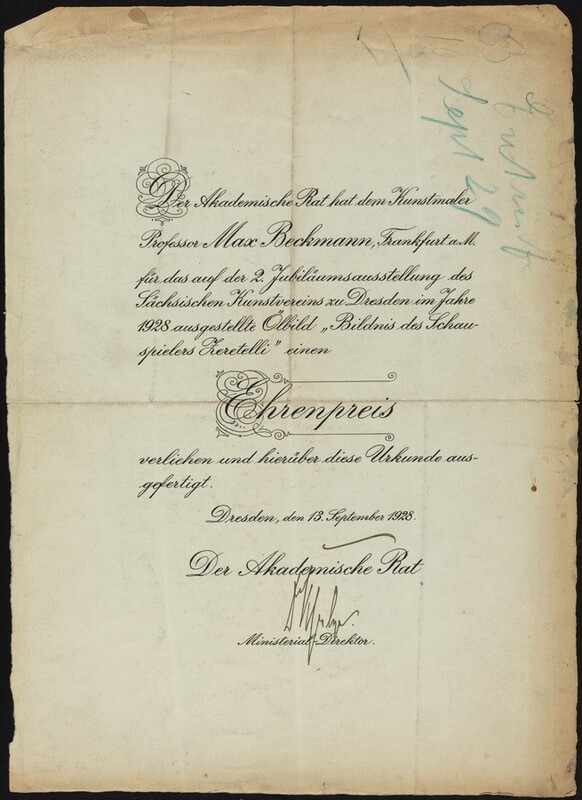 Der Akademische Rat hat dem Kunstmaler
Professor Max Beckmann, Frankfurt a.M.
für das auf der 2. Jubiläumsausstellung des
Sächsischen Kunstvereins zu Dresden im Jahre
1928 ausgestellte Ölbild „Bildnis des Schau-
spielers Zeretelli" einen
Ehrenpreis
verliehen und hierüber diese Urkunde aus-
gefertigt.
Dresden, den 13. September 1928.
Der Akademische Rat
Ministerial-Direktor.
Sept 29